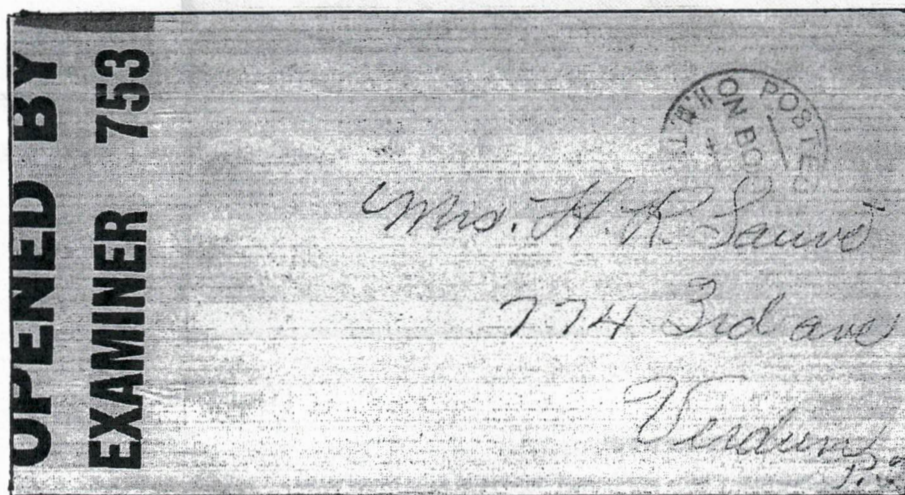 OPENED BY
EXAMINER 753
POSTED
ON BO
ON H.M.T.
Mrs. H. R. Sauvé
774 3rd ave
Verdun
P.Q